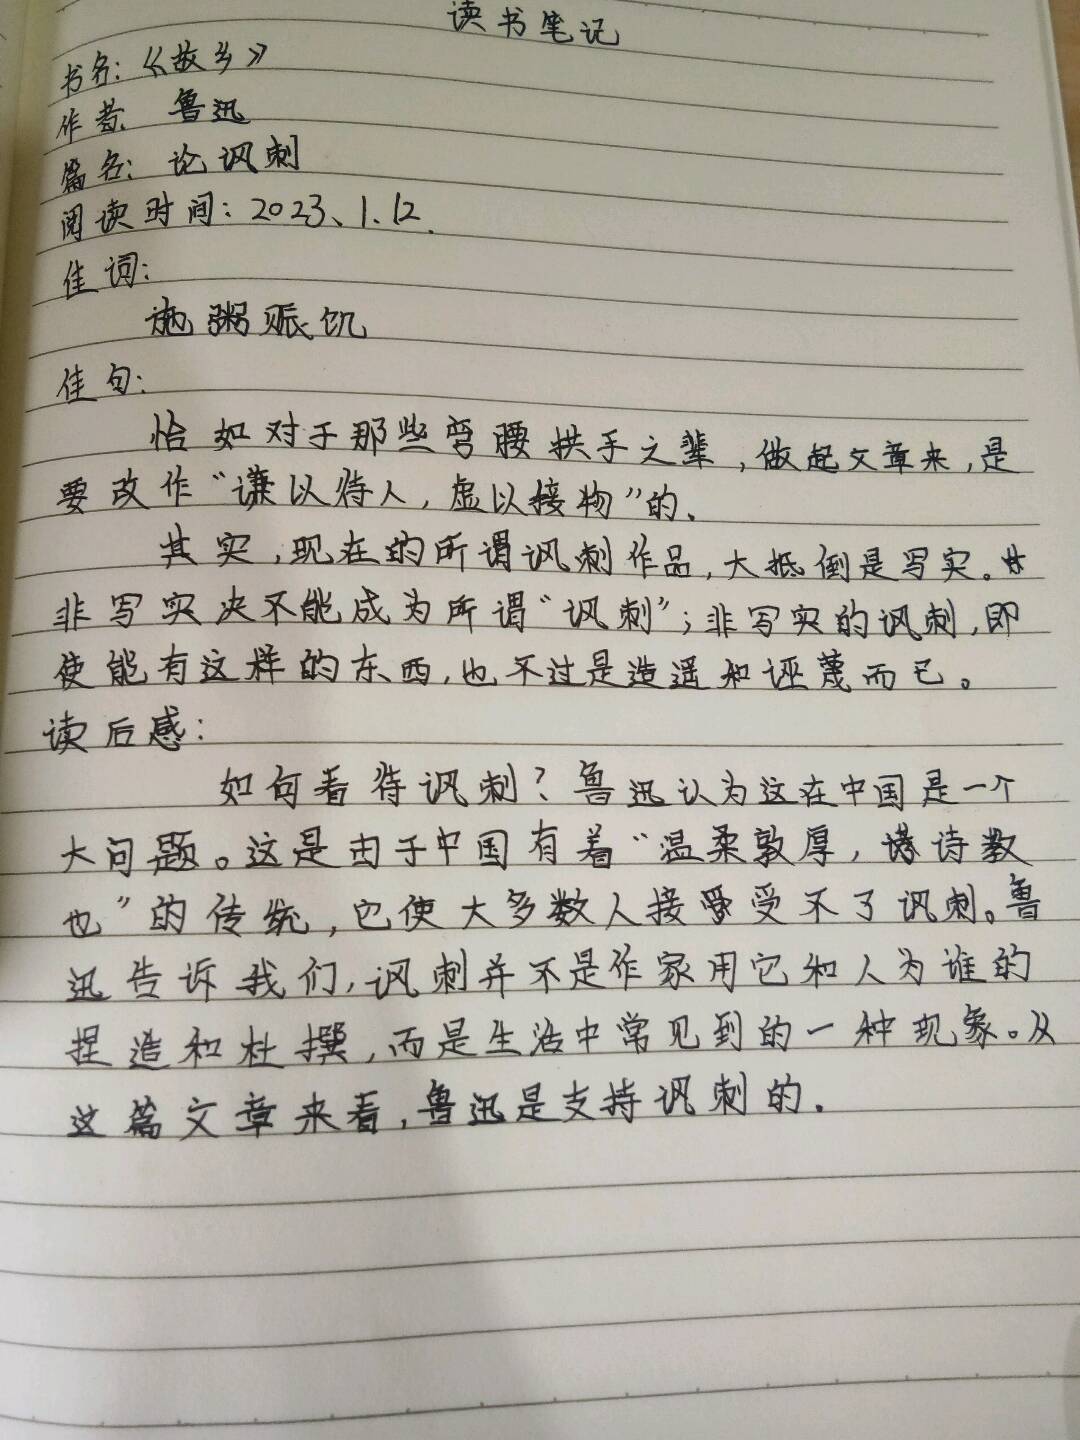 读书笔记
书名：《故乡》
作者 鲁迅
篇名：论讽刺
阅读时间：2023、1.12.
佳词：
施粥赈饥
佳句：
恰如对于那些弯腰拱手之辈，做起文章来，是
要改作“谦以待人，虚以接物”的、
其实，现在的所谓讽刺作品，大抵倒是写实。
非写实决不能成为所谓“讽刺”；非写实的讽刺，即
使能有这样的东西，也不过是造遥和诬蔑而已。
读后感：
如何看待讽刺？鲁迅认为这在中国是一个
大问题。这是由于中国有着“温柔敦厚，诗教
也”的传统，它使大多数人接受不了讽刺。鲁
迅告诉我们，讽刺并不是作家用它和人为谁的
捏造和杜撰，而是生活中常见到的一种现象。从
这篇文章来看，鲁迅是支持讽刺的.